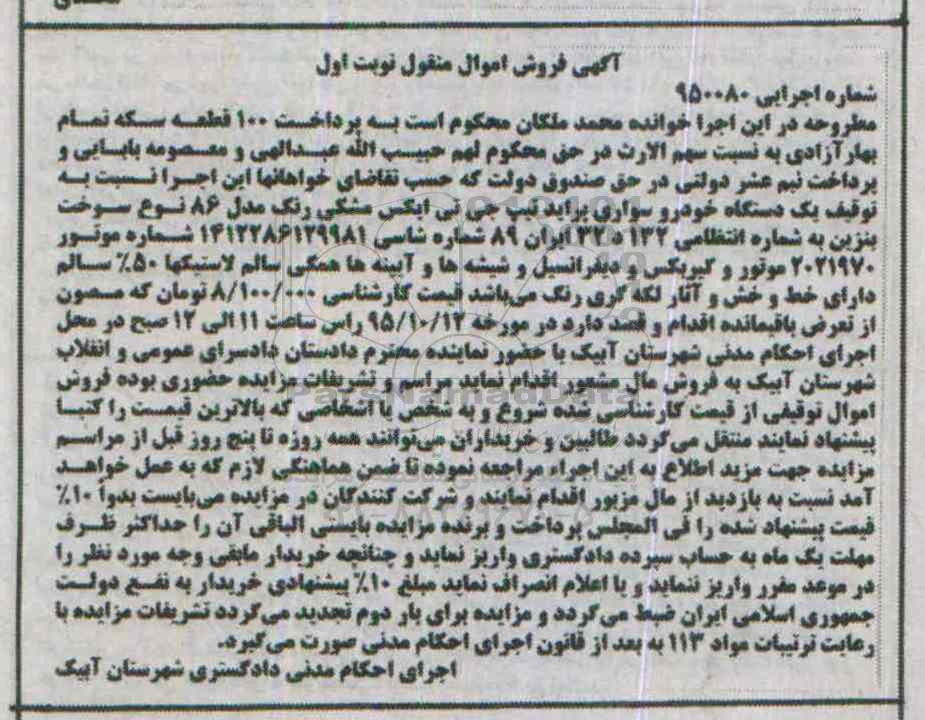 آگهی فروش اموال منقول نوبت اول
شماره اجرایی ۹۵۰۰۸۰
مطروحه در این اجرا خوانده محمد ملکان محکوم است به پرداخت ۱۰۰ قطعه سکه تمام
بهار آزادی به نسبت سهم الارث در حق محکوم لهم حبیب الله عبدالهی و معصومه بابایی و
پرداخت نیم عشر دولتی در حق صندوق دولت که حسب تقاضای خواهانها این اجرا نسبت به
توقیف یک دستگاه خودرو سواری پراید تیپ جی تی ایکس مشکی رنگ مدل ۸۶ نوع سوخت
بنزین به شماره انتظامی ۱۳۲ د ۳۲ ایران ۸۹ شماره شاسی ۱۴۱۲۲۸۶۱۲۹۹۸۱ شماره موتور
۲۰۲۱۹۷۰ موتور و گیربکس و دیفرانسیل و شیشه ها و آیینه ها همگی سالم لاستیکها ۵۰٪ سالم
دارای خط و خش و آثار لکه گری رنگ می‌باشد قیمت کارشناسی ۸/۱۰۰/۰۰۰ تومان که مصون
از تعرض باقیمانده اقدام و قصد دارد در مورخه ۹۵/۱۰/۱۲ راس ساعت ۱۱ الی ۱۲ صبح در محل
اجرای احکام مدنی شهرستان آبیک با حضور نماینده محترم دادستان دادسرای عمومی و انقلاب
شهرستان آبیک به فروش مال مشعور اقدام نماید مراسم و تشریفات مزایده حضوری بوده فروش
اموال توقیفی از قیمت کارشناسی شده شروع و به شخص یا اشخاصی که بالاترین قیمت را کتبا
پیشنهاد نمایند منتقل می‌گردد طالبین و خریداران می‌توانند همه روزه تا پنج روز قبل از مراسم
مزایده جهت مزید اطلاع به این اجراء مراجعه نموده تا ضمن هماهنگی لازم که به عمل خواهد
آمد نسبت به بازدید از مال مزبور اقدام نمایند و شرکت کنندگان در مزایده می‌بایست بدواً ۱۰٪
قیمت پیشنهاد شده را فی المجلس پرداخت و برنده مزایده بایستی الباقی آن را حداکثر ظرف
مهلت یک ماه به حساب سپرده دادگستری واریز نماید و چنانچه خریدار مابقی وجه مورد نظر را
در موعد مقرر واریز ننماید و یا اعلام انصراف نماید مبلغ ۱۰٪ پیشنهادی خریدار به نفع دولت
جمهوری اسلامی ایران ضبط می‌گردد و مزایده برای بار دوم تجدید می‌گردد تشریفات مزایده با
رعایت ترتیبات مواد ۱۱۳ به بعد از قانون اجرای احکام مدنی صورت می‌گیرد.
اجرای احکام مدنی دادگستری شهرستان آبیک
ParsNamadData